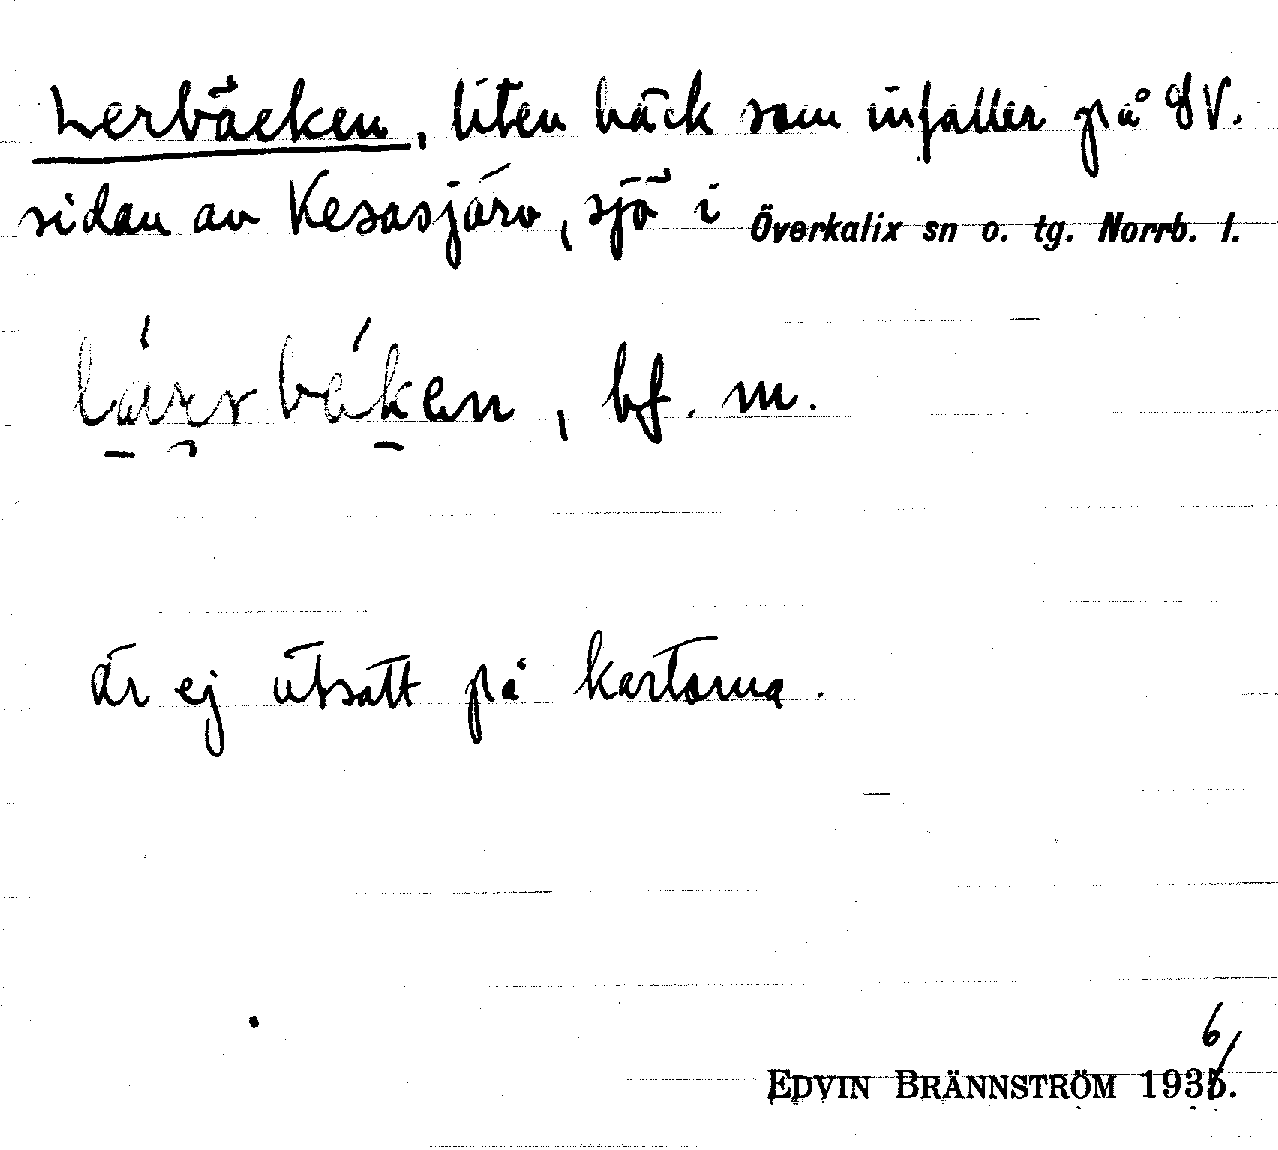 Lerbäcken, liten bäck som infaller på SV.
sidan av Kesasjärv, sjö i Överkalix sn o. tg. Norrb. l.
är ej utsatt på kartorna.
bf. m.
6
EDVIN BRÄNNSTRÖM 1935.